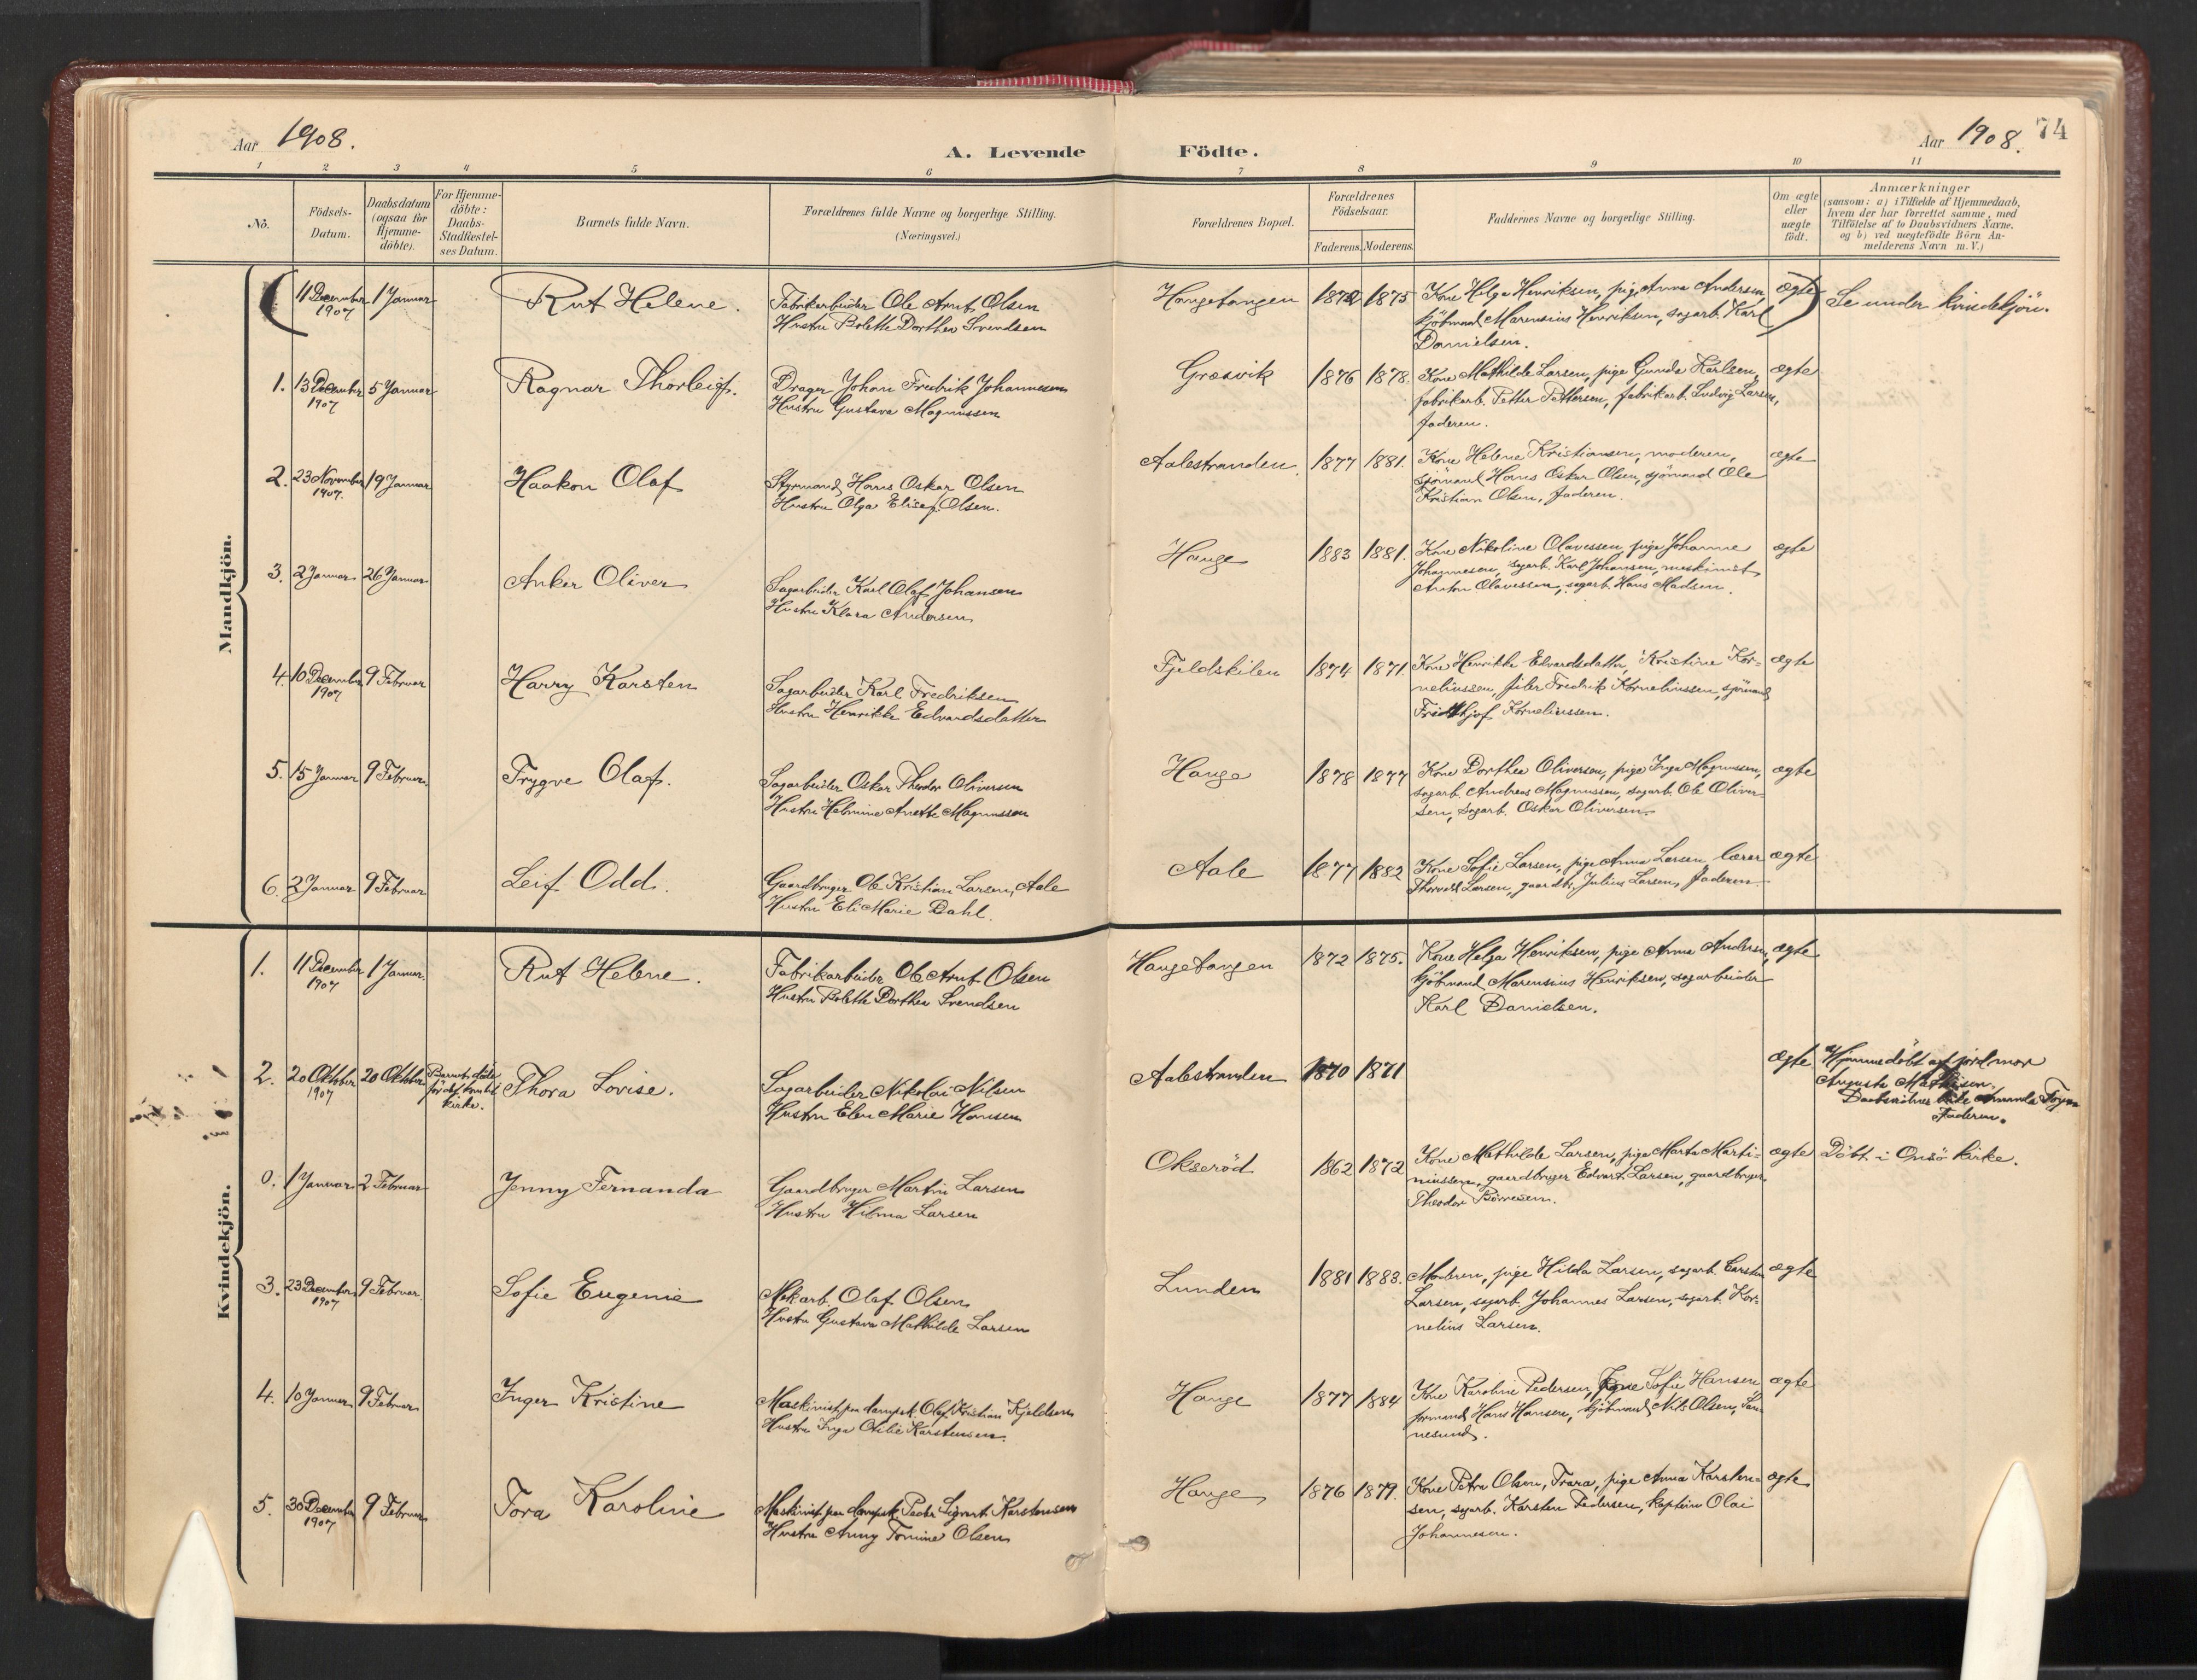 Aar 1908.
A. Levende Födte.
Aar 1908. 74
1 2 3 4 5 6 7 8 9 10 11
No.
Födsels-
Datum.
Daabsdatum
(ogsaa for
Hjemme-
döbte).
For Hjemme-
döbte:
Daabs-
Stadfæstel-
ses Datum.
Barnets fulde Navn.
Forældrenes fulde Navne og borgerlige Stilling.
(Næringsvei.)
Forældrenes Bopæl.
Forældrenes
Födselsaar.
Faderens. Moderens.
Faddernes Navne og borgerlige Stilling.
Om ægte
eller
uægte
födt.
Anmærkninger
(saasom: a) i Tilfælde af Hjemmedaab,
hvem der har forrettet samme, med
Tilföielse af to Daabsvidners Navne.
og b) ved uægtefödte Börn An-
melderens Navn m. V.)
Mandkjön.
11 December
1907
1 Januar
Rut Helene.
Fabrikarbeider Ole Arnt Olsen
Hustru Bolette Dorthea Svendsen
Haugetangen 1872 1875
Kone Helga Henriksen, pige Anna Andersen,
kjöbmand Marensius Henriksen, sagarb. Karl
Danielsen.
ægte
Se under kvindekjön.
1. 13 December
1907
5 Januar
Ragnar Thorleif.
Drager Johan Fredrik Johannesen
Hustru Gustava Magnussen
Græsvik 1876 1878.
Kone Mathilde Larsen, pige Gunda Karlsen,
fabrikarb. Petter Pettersen, fabrikarb. Ludvig Larsen,
faderen.
ægte
2. 23 November
1907.
19 Januar
Haakon Olaf
Styrmand Hans Oskar Olsen
Hustru Olga Elise f. Olsen.
Aalestranden 1877 1881.
Kone Helene Kristiansen, moderen,
sjömand Hans Oskar Olsen, sjömand Ole
Kristian Olsen, faderen.
ægte
3. 2 Januar 26 Januar
Anker Oliver
Sagarbeider Karl Olaf Johansen
Hustru Klara Andersen
Hauge 1883 1881.
Kone Nikoline Olavessen, pige Johanne
Johannesen, sagarb. Karl Johansen, maskinist
Anton Olavessen, sagarb. Hans Madsen.
ægte
4. 10 December
1907
9 Februar
Harry Karsten
Sagarbeider Karl Fredriksen
Hustru Henrikke Edvardsdatter
Fjeldskilen 1874 1871
Kone Henrikke Edvardsdatter, Kristine Kor-
neliussen, filer Fredrik Korneliussen, sjömand
Fridthjof Korneliussen.
ægte
5. 15 Januar 9 Februar.
Trygve Olaf.
Sagarbeider Oskar Theodor Oliversen
Hustru Helmine Anette Magnussen
Hauge 1878 1877
Kone Dorthea Oliversen, pige Inga Magnussen,
sagarb. Andreas Magnussen, sagarb. Ole Oliver-
sen, sagarb. Oskar Oliversen.
ægte
6. 2 Januar 9 Februar
Leif Odd.
Gaardbruger Ole Kristian Larsen, Aale
Hustru Eli Marie Dahl.
Aale 1877 1882
Kone Sofie Larsen, pige Anna Larsen, lærer
Thorvald Larsen, gaardbr. Julius Larsen, faderen.
ægte
Kvindekjön.
1. 11 December
1907
1 Januar.
Rut Helene.
Fabrikarbeider Ole Arnt Olsen
Hustru Bolette Dorthea Svendsen
Haugetangen 1872 1875.
Kone Helga Henriksen, pige Anna Andersen,
kjöbmand Marensius Henriksen, sagarbeider
Karl Danielsen.
ægte
2. 20 Oktober
1907
20 Oktober
Barnet döde
för
kirke.
Thora Lovise.
Sagarbeider Nikolai Nilsen
Hustru Elen Marie Hansen
Aalestranden 1870 1871
ægte
Hjemmedöbt af jordmor
Augusta Mathisen.
Daabsvidner Amanda
Faderen.
0. 1 Januar 2 Februar
Jenny Fernanda
Gaardbruger Martin Larsen
Hustru Hilma Larsen
Okseröd 1862 1872
Kone Mathilde Larsen, pige Marta Marti-
niussen, gaardbruger Edvart Larsen, gaardbruger
Theodor Börresen.
ægte
Döbt i Onsö kirke.
3. 23 December
1907
9 Februar.
Sofie Eugenie
Mek. arb. Olaf Olsen
Hustru Gustava Mathilde Larsen
Lunden 1881 1883.
Moderen, pige Hilda Larsen, sagarb. Carsten
Larsen, sagarb. Johannes Larsen, sagarb. Kor-
nelius Larsen.
ægte
4. 10 Januar 9 Februar
Inger Kristine
Maskinist paa dampsk. Olaf Kristian Kjeldsen
Hustru Inga Otilie Karstensen.
Hauge 1877 1884
Kone Karoline Pedersen, Sofie Hansen,
formand Hans Hansen, kjöbmand Nils Olsen, San-
nesund.
ægte
5. 30 December
1907
9 Februar
Tora Karoline
Maskinist paa dampsk. Peder Sigvart Karstensen
Hustru Anny Tomine Olsen
Hauge 1876 1879.
Kone Petra Olsen, Trara, pige Anna Karsten-
sen, sagarb. Karsten Pedersen, kaptein Olai
Johannesen.
ægte